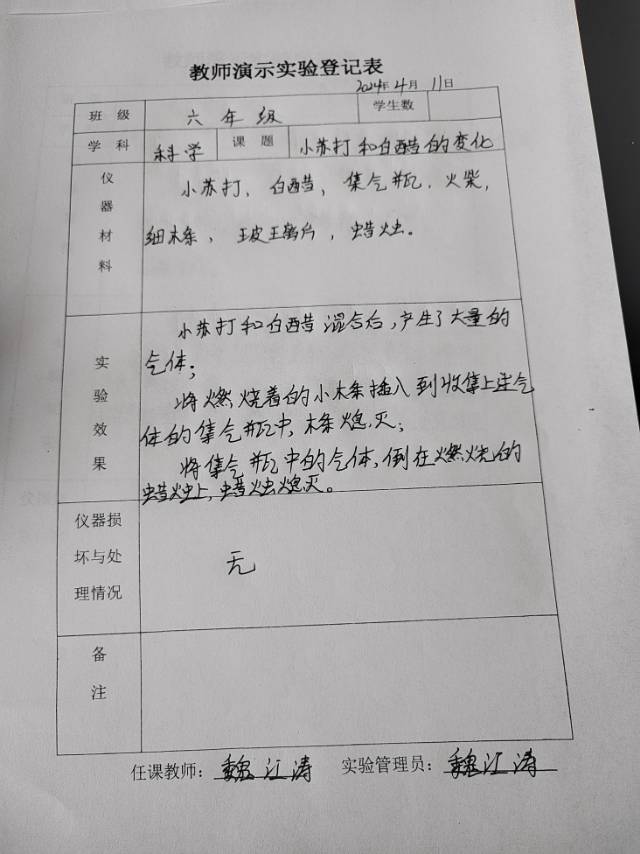 教师演示实验登记表
2024年4月11日
班 级 六年级 学生数
学 科 科学 课 题 小苏打和白醋的变化
仪器材料
小苏打、白醋、集气瓶、火柴,
细木条、玻璃片、蜡烛。
实验效果
小苏打和白醋混合后,产生了大量的
气体;
将燃烧着的小木条插入到收集上述气
体的集气瓶中,木条熄灭;
将集气瓶中的气体,倒在燃烧的
蜡烛上,蜡烛熄灭。
仪器损
坏与处
理情况
无
备注
任课教师:魏江涛 实验管理员:魏江涛